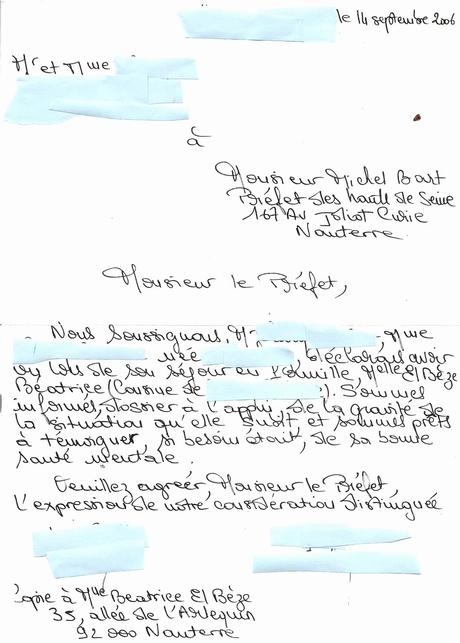 le 14 septembre 2006
Mr et Mme
à
Monsieur Michel Bart
Préfet des hauts de Seine
167 Av Joliot Curie
Nanterre
Monsieur le Préfet,
Nous soussignons, Mr , Mme
née déclarons avoir
vu lors de son séjour en famille, Melle El Bèze
Béatrice (Cousine de ). Sommes
informés, dossier à l'appui, de la gravité de
la situation qu'elle subit, et sommes prêts
à témoigner, si besoin était, de sa bonne
santé mentale.
Veuillez agréer, Monsieur le Préfet,
l'expression de notre considération distinguée
à Melle Beatrice El Bèze
35, allée de l'Arlequin
92 000 Nanterre